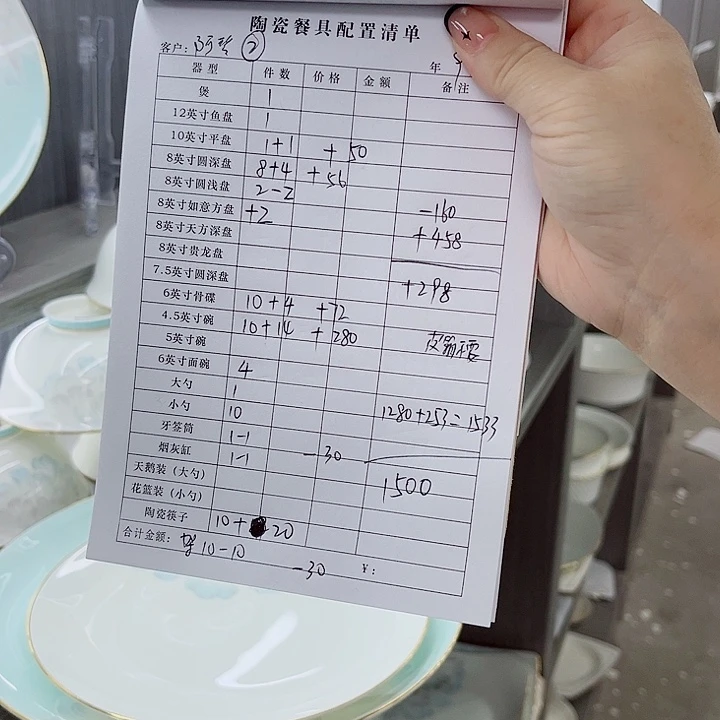 陶瓷餐具配置清单
客户: ②
年
器型 件数 价格 金额 备注
煲 1
12英寸鱼盘 1
10英寸平盘 1+1 +50
8英寸圆深盘 8+4 +56
8英寸圆浅盘 2-2
8英寸如意方盘 +2 -160
8英寸天方深盘 +458
8英寸贵龙盘
7.5英寸圆深盘 +298
6英寸骨碟 10+4 +72
4.5英寸碗 10+14 +280
5英寸碗
6英寸面碗 4
大勺 1
小勺 10 1280+253=1533
牙签筒 1-1
烟灰缸 1-1 -30
天鹅装（大勺） 1500
花篮装（小勺）
陶瓷筷子 10+20
合计金额: 10-10 -30 ¥: